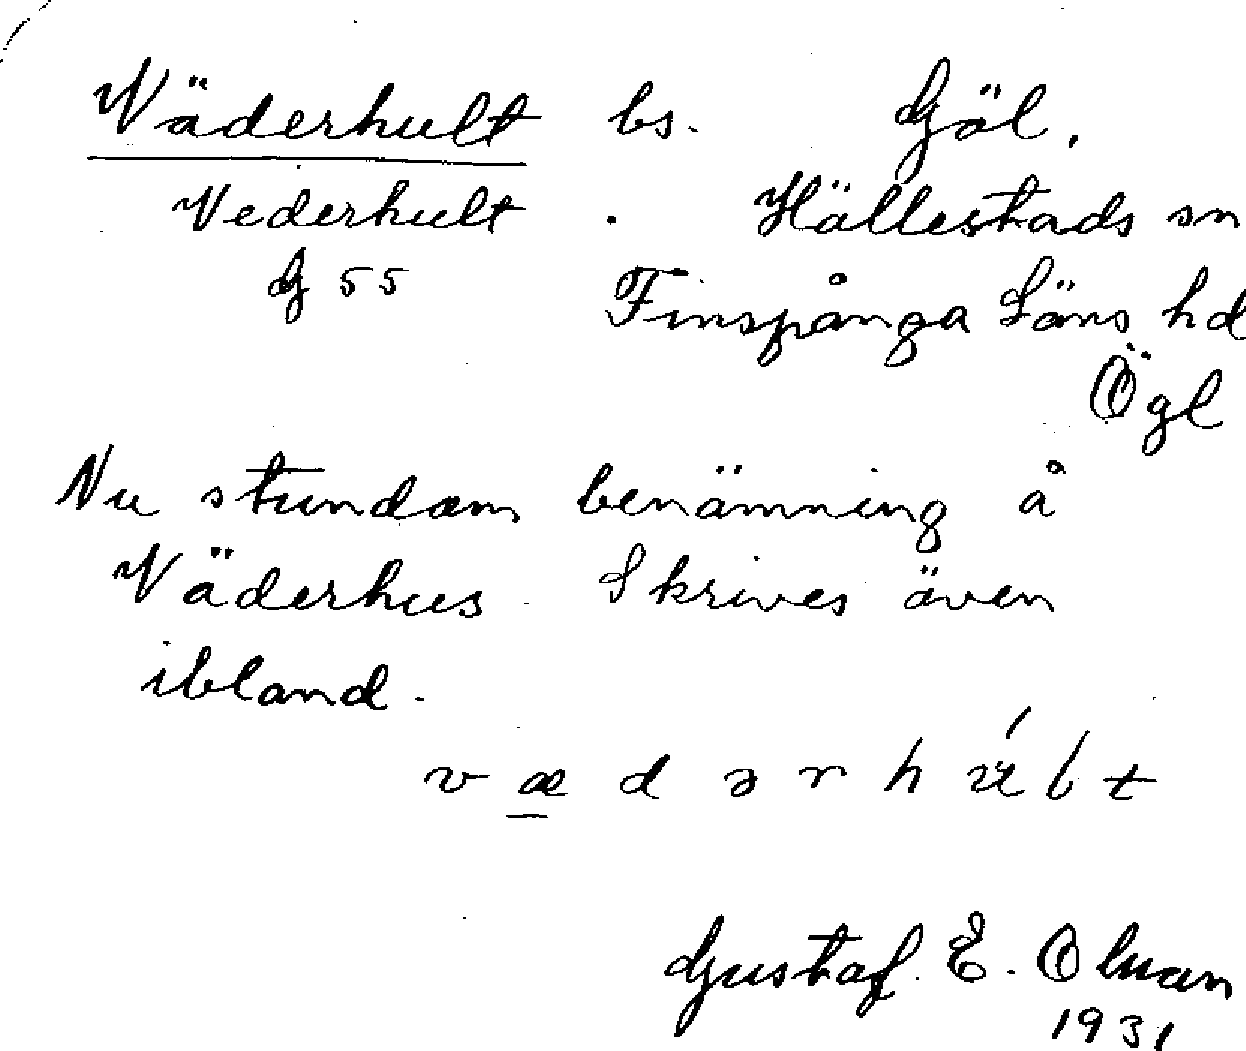 Väderhult bs. Gäl.
Vederhult . Hällestads sn
G 55 Finspånga Läns hd
Ögl
Nu stundom benämning å
Väderhus. Skrives även
ibland.
v æ d ə r h ú l t
Gustaf E. Olson
1931